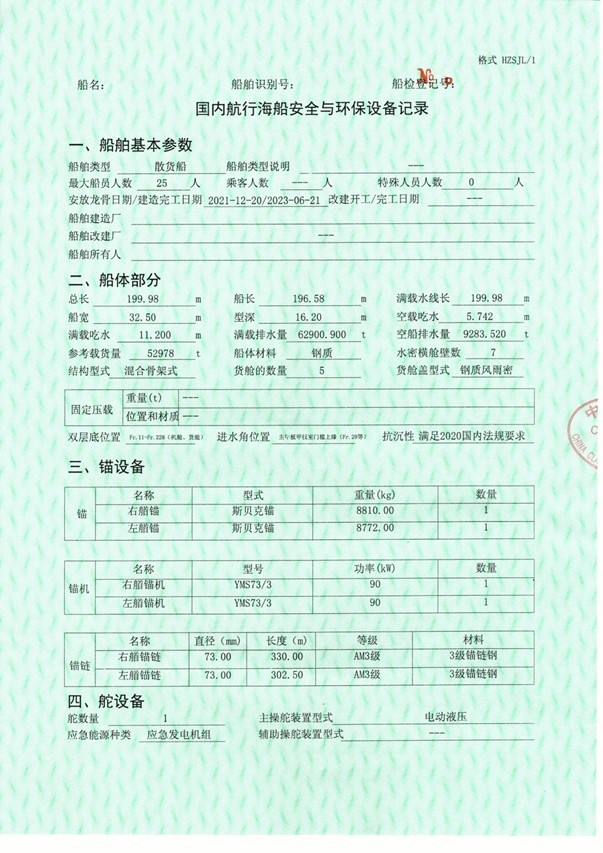 格式 HZSJL/1
№
船名： 船舶识别号： 船检登记号：
国内航行海船安全与环保设备记录
一、船舶基本参数
船舶类型 散货船 船舶类型说明 ---
最大船员人数 25 人 乘客人数 --- 人 特殊人员人数 0 人
安放龙骨日期/建造完工日期 2021-12-20/2023-06-21 改建开工/完工日期 ---
船舶建造厂
船舶改建厂 ---
船舶所有人
二、船体部分
总长 199.98 m 船长 196.58 m 满载水线长 199.98 m
船宽 32.50 m 型深 16.20 m 空载吃水 5.742 m
满载吃水 11.200 m 满载排水量 62900.900 t 空船排水量 9283.520 t
参考载货量 52978 t 船体材料 钢质 水密横舱壁数 7
结构型式 混合骨架式 货舱的数量 5 货舱盖型式 钢质风雨密
固定压载 重量(t) ---
位置和材质 ---
双层底位置 Fr.11-Fr.228（机舱、货舱） 进水角位置 抗沉性 满足2020国内法规要求
三、锚设备
名称 型式 重量(kg) 数量
锚 右艏锚 斯贝克锚 8810.00 1
左艏锚 斯贝克锚 8772.00 1
名称 型号 功率(kW) 数量
锚机 右艏锚机 YMS73/3 90 1
左艏锚机 YMS73/3 90 1
名称 直径 (mm) 长度 (m) 等级 材料
锚链 右艏锚链 73.00 330.00 AM3级 3级锚链钢
左艏锚链 73.00 302.50 AM3级 3级锚链钢
四、舵设备
舵数量 1 主操舵装置型式 电动液压
应急能源种类 应急发电机组 辅助操舵装置型式 ---